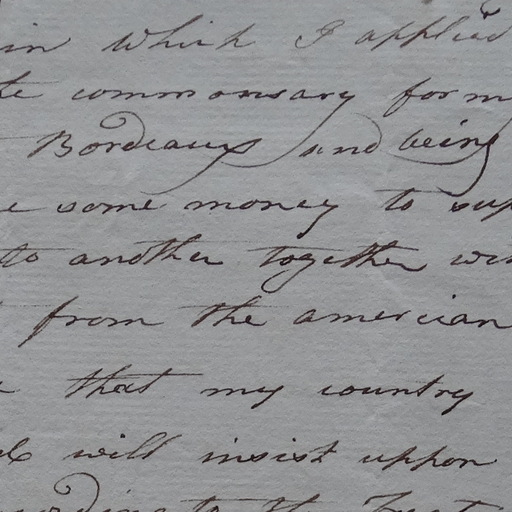 in which I applied
te commonsary form
Bordeaux and being
e some money to sup
to another together wi
from the amercian
that my country
will insist uppon
cording to the Treat